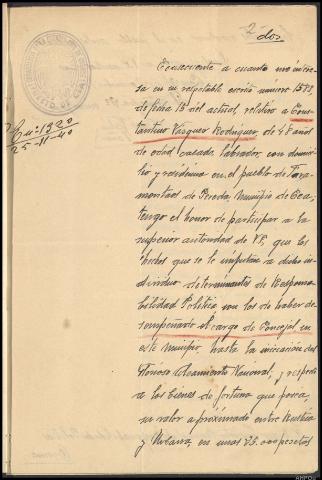 2 dos
Consecuente a cuanto me intere-
sa en su respetable escrito número 1572,
de fecha 15 del actual, relativo a Cons-
tantino Vázquez Rodriguez, de 48 años
de edad, casado, labrador, con domici-
lio y residencia en el pueblo de Fara-
montaos de Pereda, Municipio de Cea,
tengo el honor de participar a la
superior autoridad de V.S. que los
hechos que se le imputan a dicho in-
dividuo determinantes de Responsa-
bilidad Política son los de haber de-
sempeñado el cargo de Concejal en
este Municipio, hasta la iniciación del
Glorioso Alzamiento Nacional; y respecto
a los bienes de fortuna que posea,
su valor aproximado entre Rústica
y Urbana, en unas pesetas
1320
25-11-40